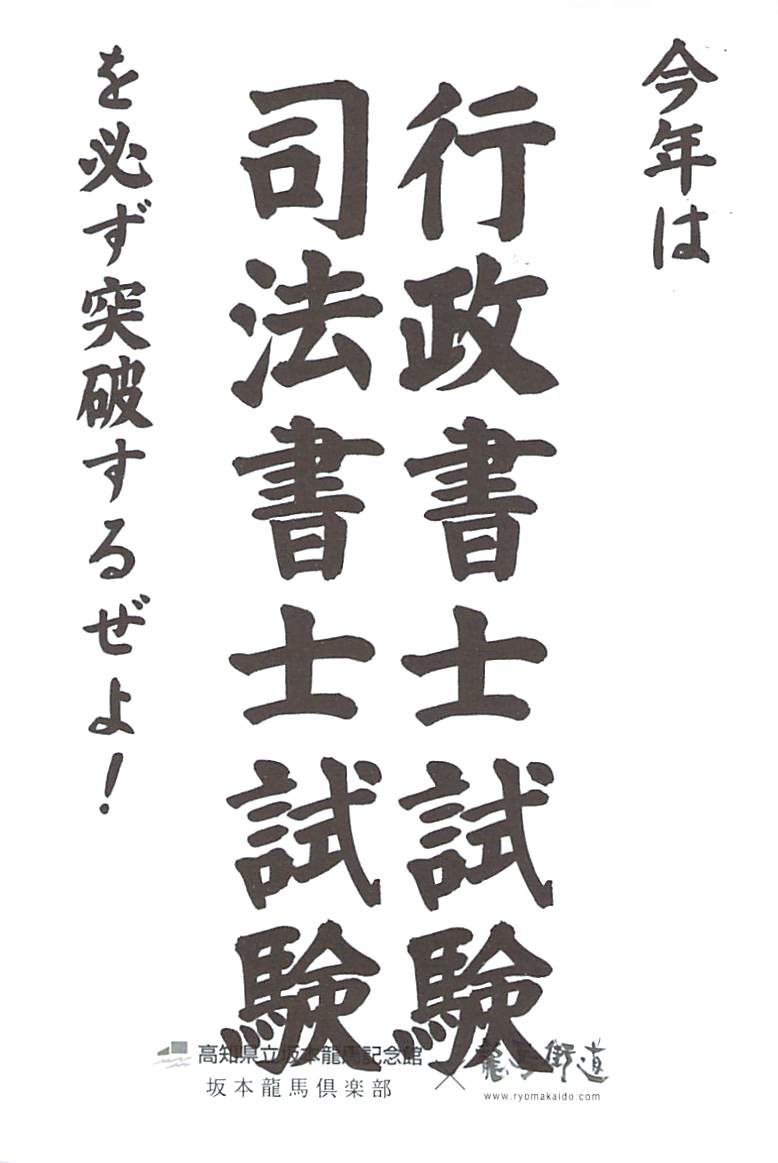 今年は
行政書士試験
司法書士試験
を必ず突破するぜよ！
高知県立坂本龍馬記念館
坂本龍馬倶楽部
×
龍馬街道
www.ryomakaido.com